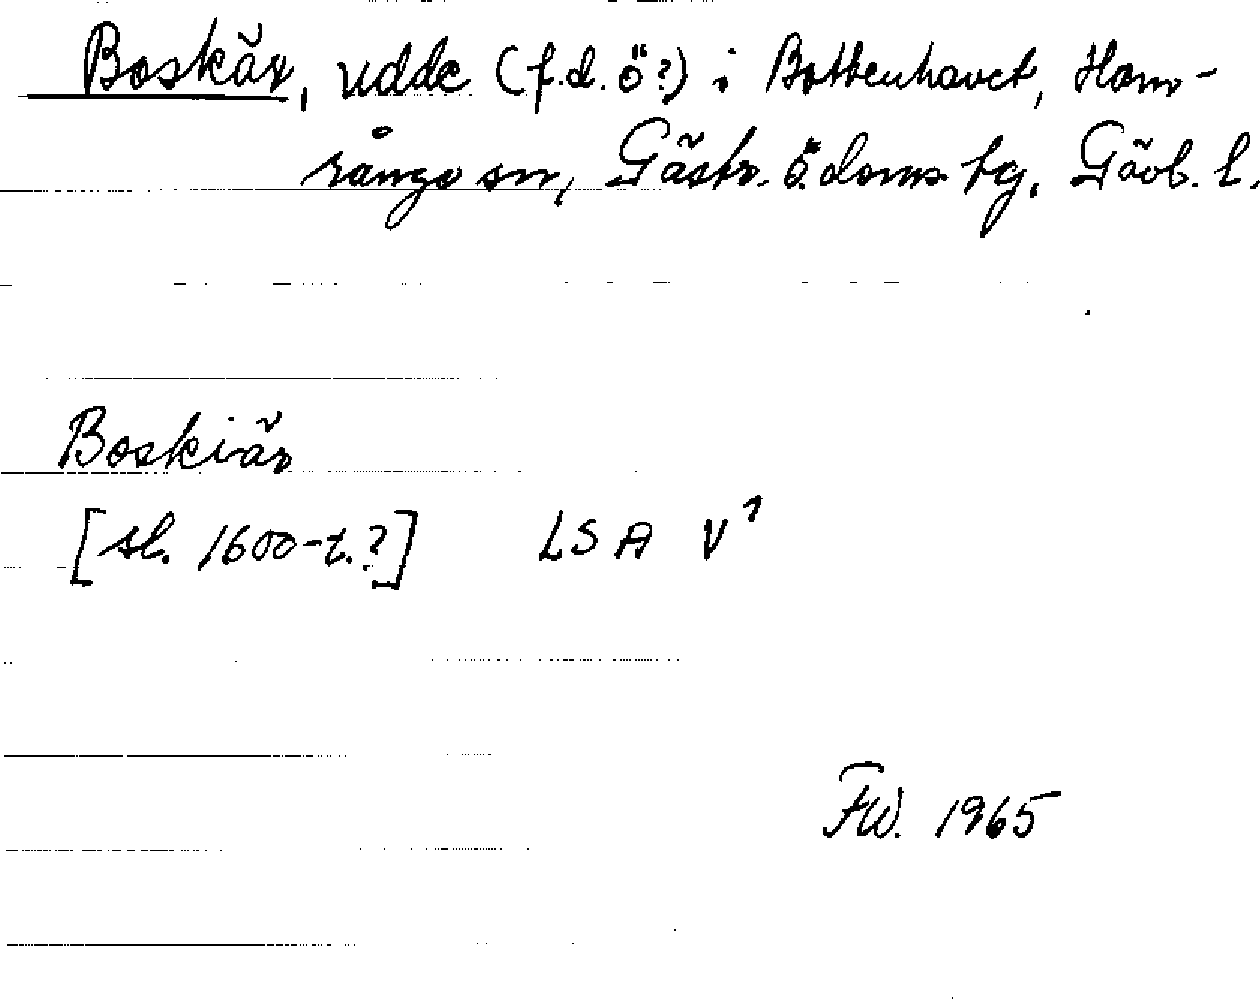 Boskär, udde (f.d. ö?) i Bottenhavet, Ham-
rånge sn, Gästr. ö. doms tg, Gävb. l.
Boskiär
[sl. 1600-t.?] LSA V¹
FW. 1965